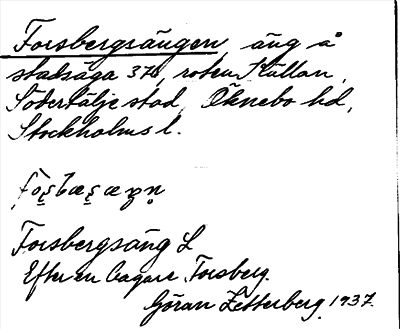 Forsbergsängen, äng å
stadsäga 376, roten Källan,
Södertälje stad, Öknebo hd,
Stockholms l.
Forsbergsäng L
Efter en ägare Forsberg.
Göran Zetterberg. 1937.